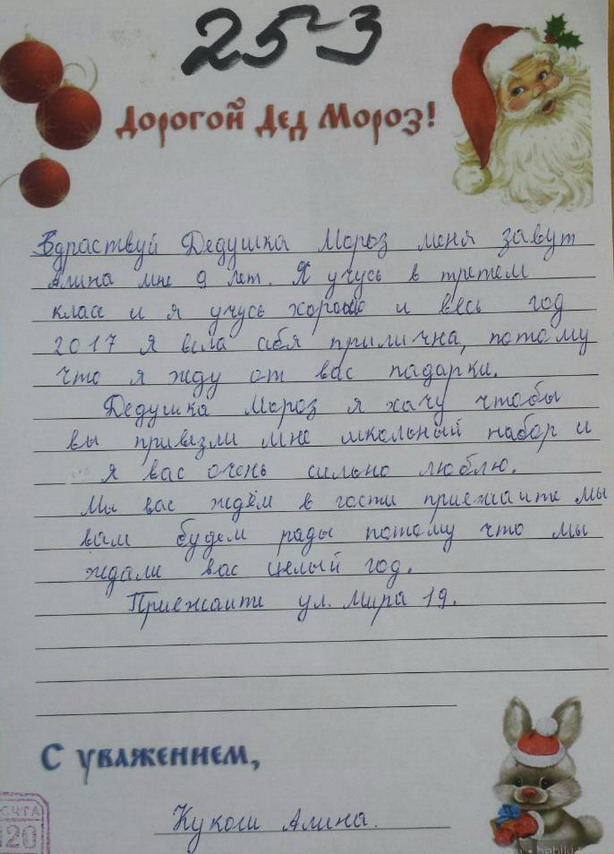 25-3
Дорогой Дед Мороз!
Здраствуй Дедушка Мороз меня завут
Алина мне 9 лет. Я учусь в третем
класе и я учусь хорошо и весь год
2017 я вела себя прилична, потому
что я жду от вас падарки.
Дедушка Мороз я хачу чтобы
вы привезли мне школьный набор и
я вас очень сильно люблю.
Мы вас ждём в гости приежаите мы
вам будем рады потому что мы
ждали вас целый год.
Приежаити ул. Мира 19.
С уважением,
Кукош Алина.
ОЧТА
20